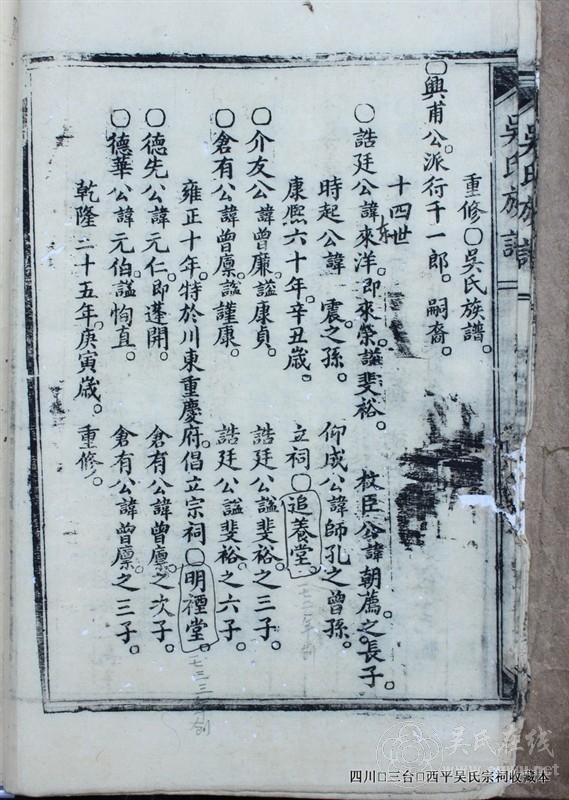 重修〇吳氏族譜。
〇興甫公。派行千一郎。嗣裔。
十四世
〇誥廷公諱來洋。即來榮。謚斐裕。 杖臣公諱朝薦。之長子。
东
時起公諱 震。之孫。 仰成公諱師孔之曾孫。
康熙六十年。辛丑歲。 立祠〇追養堂。
〇介友公諱曾廉。謚康貞。 誥廷公謚斐裕。之三子。
〇倉有公諱曾廩。謚謹康。 誥廷公謚斐裕。之六子。
雍正十年。特於川東重慶府。倡立宗祠〇明禋堂。
〇德先公諱元仁。即蓬開。 倉有公諱曾廩。之次子。
〇德華公諱元伯。謚恂直。 倉有公諱曾廩。之三子。
乾隆二十五年。庚寅歲。 重修。
吳氏族譜
吳氏族譜
吴氏在线
四川□三台□西平吴氏宗祠收藏本